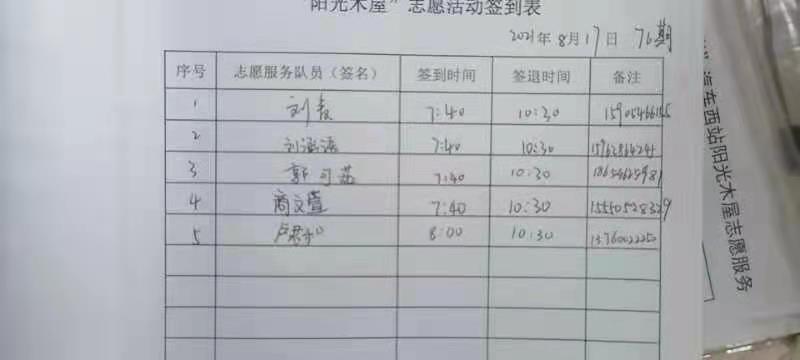 "阳光木屋"志愿活动签到表
2021年8月17日 76期
序号 志愿服务队员（签名） 签到时间 签退时间 备注
1 刘 7:40 10:30
2 刘 7:40 10:30
3 郭可 7:40 10:30
4 商文萱 7:40 10:30 15550528329
5 卢 8:00 10:30 13760022250
汽车西站阳光木屋志愿服务